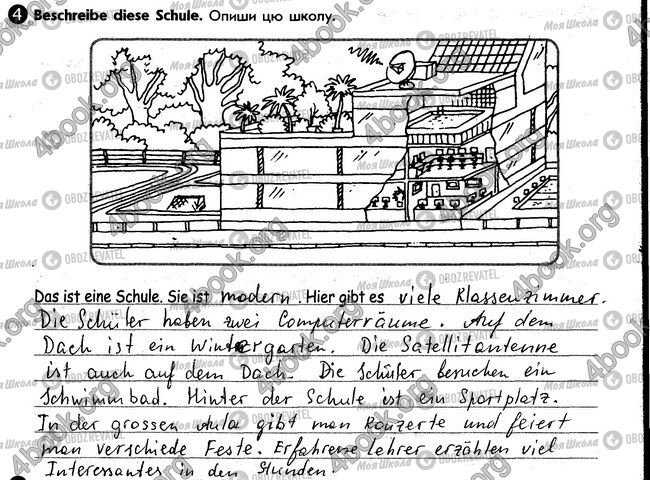 4 Beschreibe diese Schule. Опиши цю школу.
Das ist eine Schule. Sie ist modern. Hier gibt es viele Klassenzimmer.
Die Schüler haben zwei Computerräume. Auf dem
Dach ist ein Wintergarten. Die Satellitantenne
ist auch auf dem Dach. Die Schüler besuchen ein
Schwimmbad. Hinter der Schule ist ein Sportplatz.
In der grossen Aula gibt man Konzerte und feiert
man verschiede Feste. Erfahrene Lehrer erzählen viel
Interessantes in den Stunden.
4book.org
Моя Школа
OBOZREVATEL